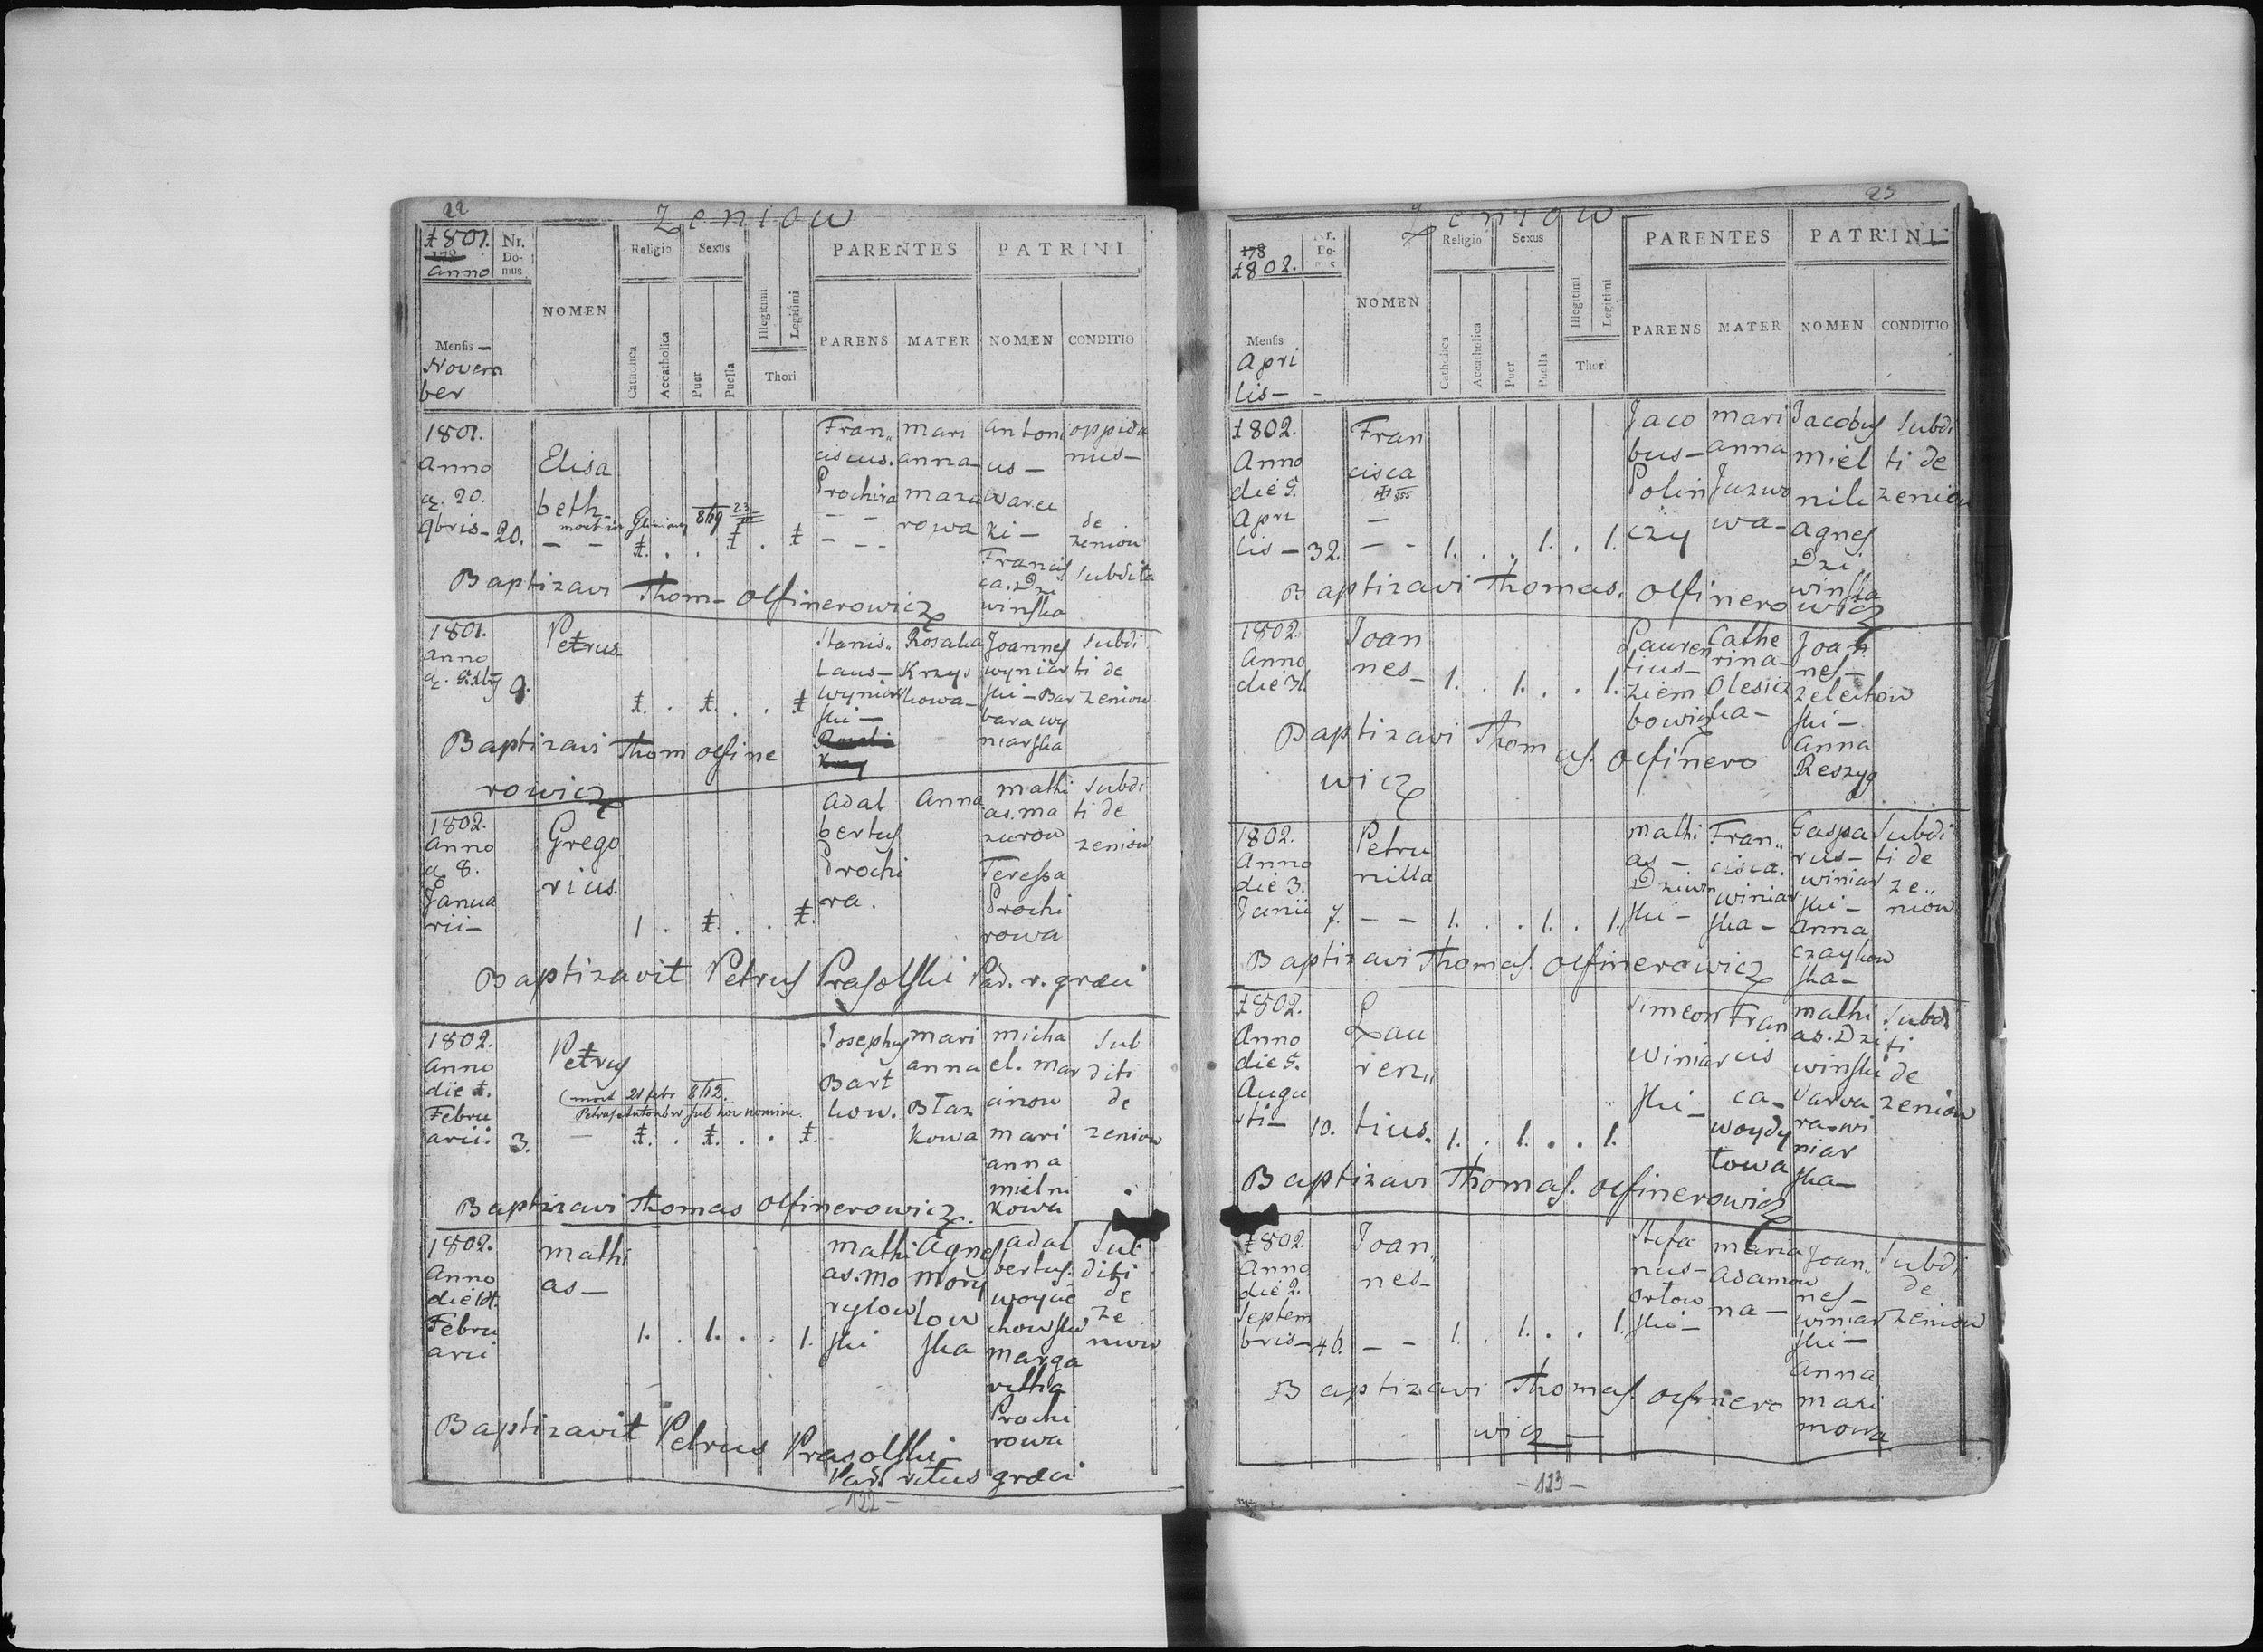 22
Zeniow
1801.
178
anno
Nr.
Do-
mus
NOMEN
Religio
Sexus
Catholica
Accatholica
Puer
Puella
Illegitimi
Legitimi
Thori
PARENTES
PATRINI
PARENS
MATER
NOMEN
CONDITIO
Mensis —
Novem
ber
1801.
Anno
20.
9bris - 20.
Elisa
beth -
Fran„
ciscus.
Prochira
mari
anna
maza
rowa
antoni
us -
Warec
ki -
Francis
ca. Dzi
winska
oppida
nus -
de
zeniow
subdita
Baptizavi Thom - Olfinerowicz
1801.
anno
9.
Petrus
Stanis„
Laus -
Wyniar
ski -
Rosalia
Krzyz
kowa -
Joannes
wyniar
ski - Bar
bara wy
niarska
subdi
ti de
zeniow
Baptizavi Thom Olfine
rowicz
1802.
Anno
8.
Janua
rii -
Grego
rius.
1. 1. 1.
adal
bertus
Prochi
ra.
Anna
mathi
as. ma
zurow
Teressa
Prochi
rowa
subdi
ti de
zeniow
Baptizavit Petrus Prasolski Par. r. graeci
1802.
Anno
die 1.
Febru
arii. 3.
Petrus
(mort 21 febr 812.
1. 1. 1.
Josephus
Bart
kow.
mari
anna
Błaz
kowa
micha
el. mar
cinow
mari
anna
mielni
kowa
sub
diti
de
zeniow
Baptizavi Thomas Olfinerowicz.
1802.
Anno
die 14.
Febru
arii
mathi
as -
1. 1. 1.
mathi
as. mo
rylow
ski
Agnes
mory
low
ska
adal
bertus.
woycie
chowski
marga
retha
Prochi
rowa
sub
diti
de
ze
niow
Baptizavit Petrus Prasolski
Par. ritus graeci
- 122 -
23
Zeniow
178
1802.
Nr.
Do-
mus
NOMEN
Religio
Sexus
Catholica
Accatholica
Puer
Puella
Illegitimi
Legitimi
Thori
PARENTES
PATRINI
PARENS
MATER
NOMEN
CONDITIO
Mensis
Apri
lis -
1802.
Anno
die 5.
Apri
lis - 32.
Fran
cisca
1. 1. 1.
Jaco
bus -
Polin
czy
mari
anna
Jazwo
wa -
Jacobus
miel
nik
Agnes
Dzi
winska
subdi
ti de
zeniow
Baptizavi Thomas. Olfinero wicz
1802.
Anno
die 31.
Joan
nes -
1. 1. 1.
Lauren
tius -
ziem
bowicz
Cathe
rina -
Olesicz
ka -
Joan
nes -
zelechow
ski -
Anna
Reszyg
Baptizavi Thomas. Olfinero
wicz
1802.
Anno
die 3.
Junii 7.
Petru
nilla
1. 1. 1.
mathi
as -
Dziwin
ski -
Fran„
cisca.
winiar
ska -
Gaspa
rus -
winiar
ski -
Anna
czaykow
ska -
subdi
ti de
ze„
niow
Baptizavi Thomas. Olfinerowicz
1802.
Anno
die 5.
Augu
sti - 10.
Lau
ren„
tius.
1. 1. 1.
Simeon
winiar
ski -
Fran
cis
ca -
woydy
towa
mathi
as. Dzi
winski
Varva
ra - wi
niar
ska -
subdi
ti
de
zeniow
Baptizavi Thomas. Olfinerowicz
1802.
Anno
die 2.
Septem
bris - 46.
Joan„
nes -
1. 1. 1.
Stefa
nus -
Orłow
ski -
maria
Adamow
na -
Joan„
nes -
winiar
ski -
Anna
maxi
mowa
subdi
de
zeniow
Baptizavi Thomas. Olfinero
wicz -
- 123 -